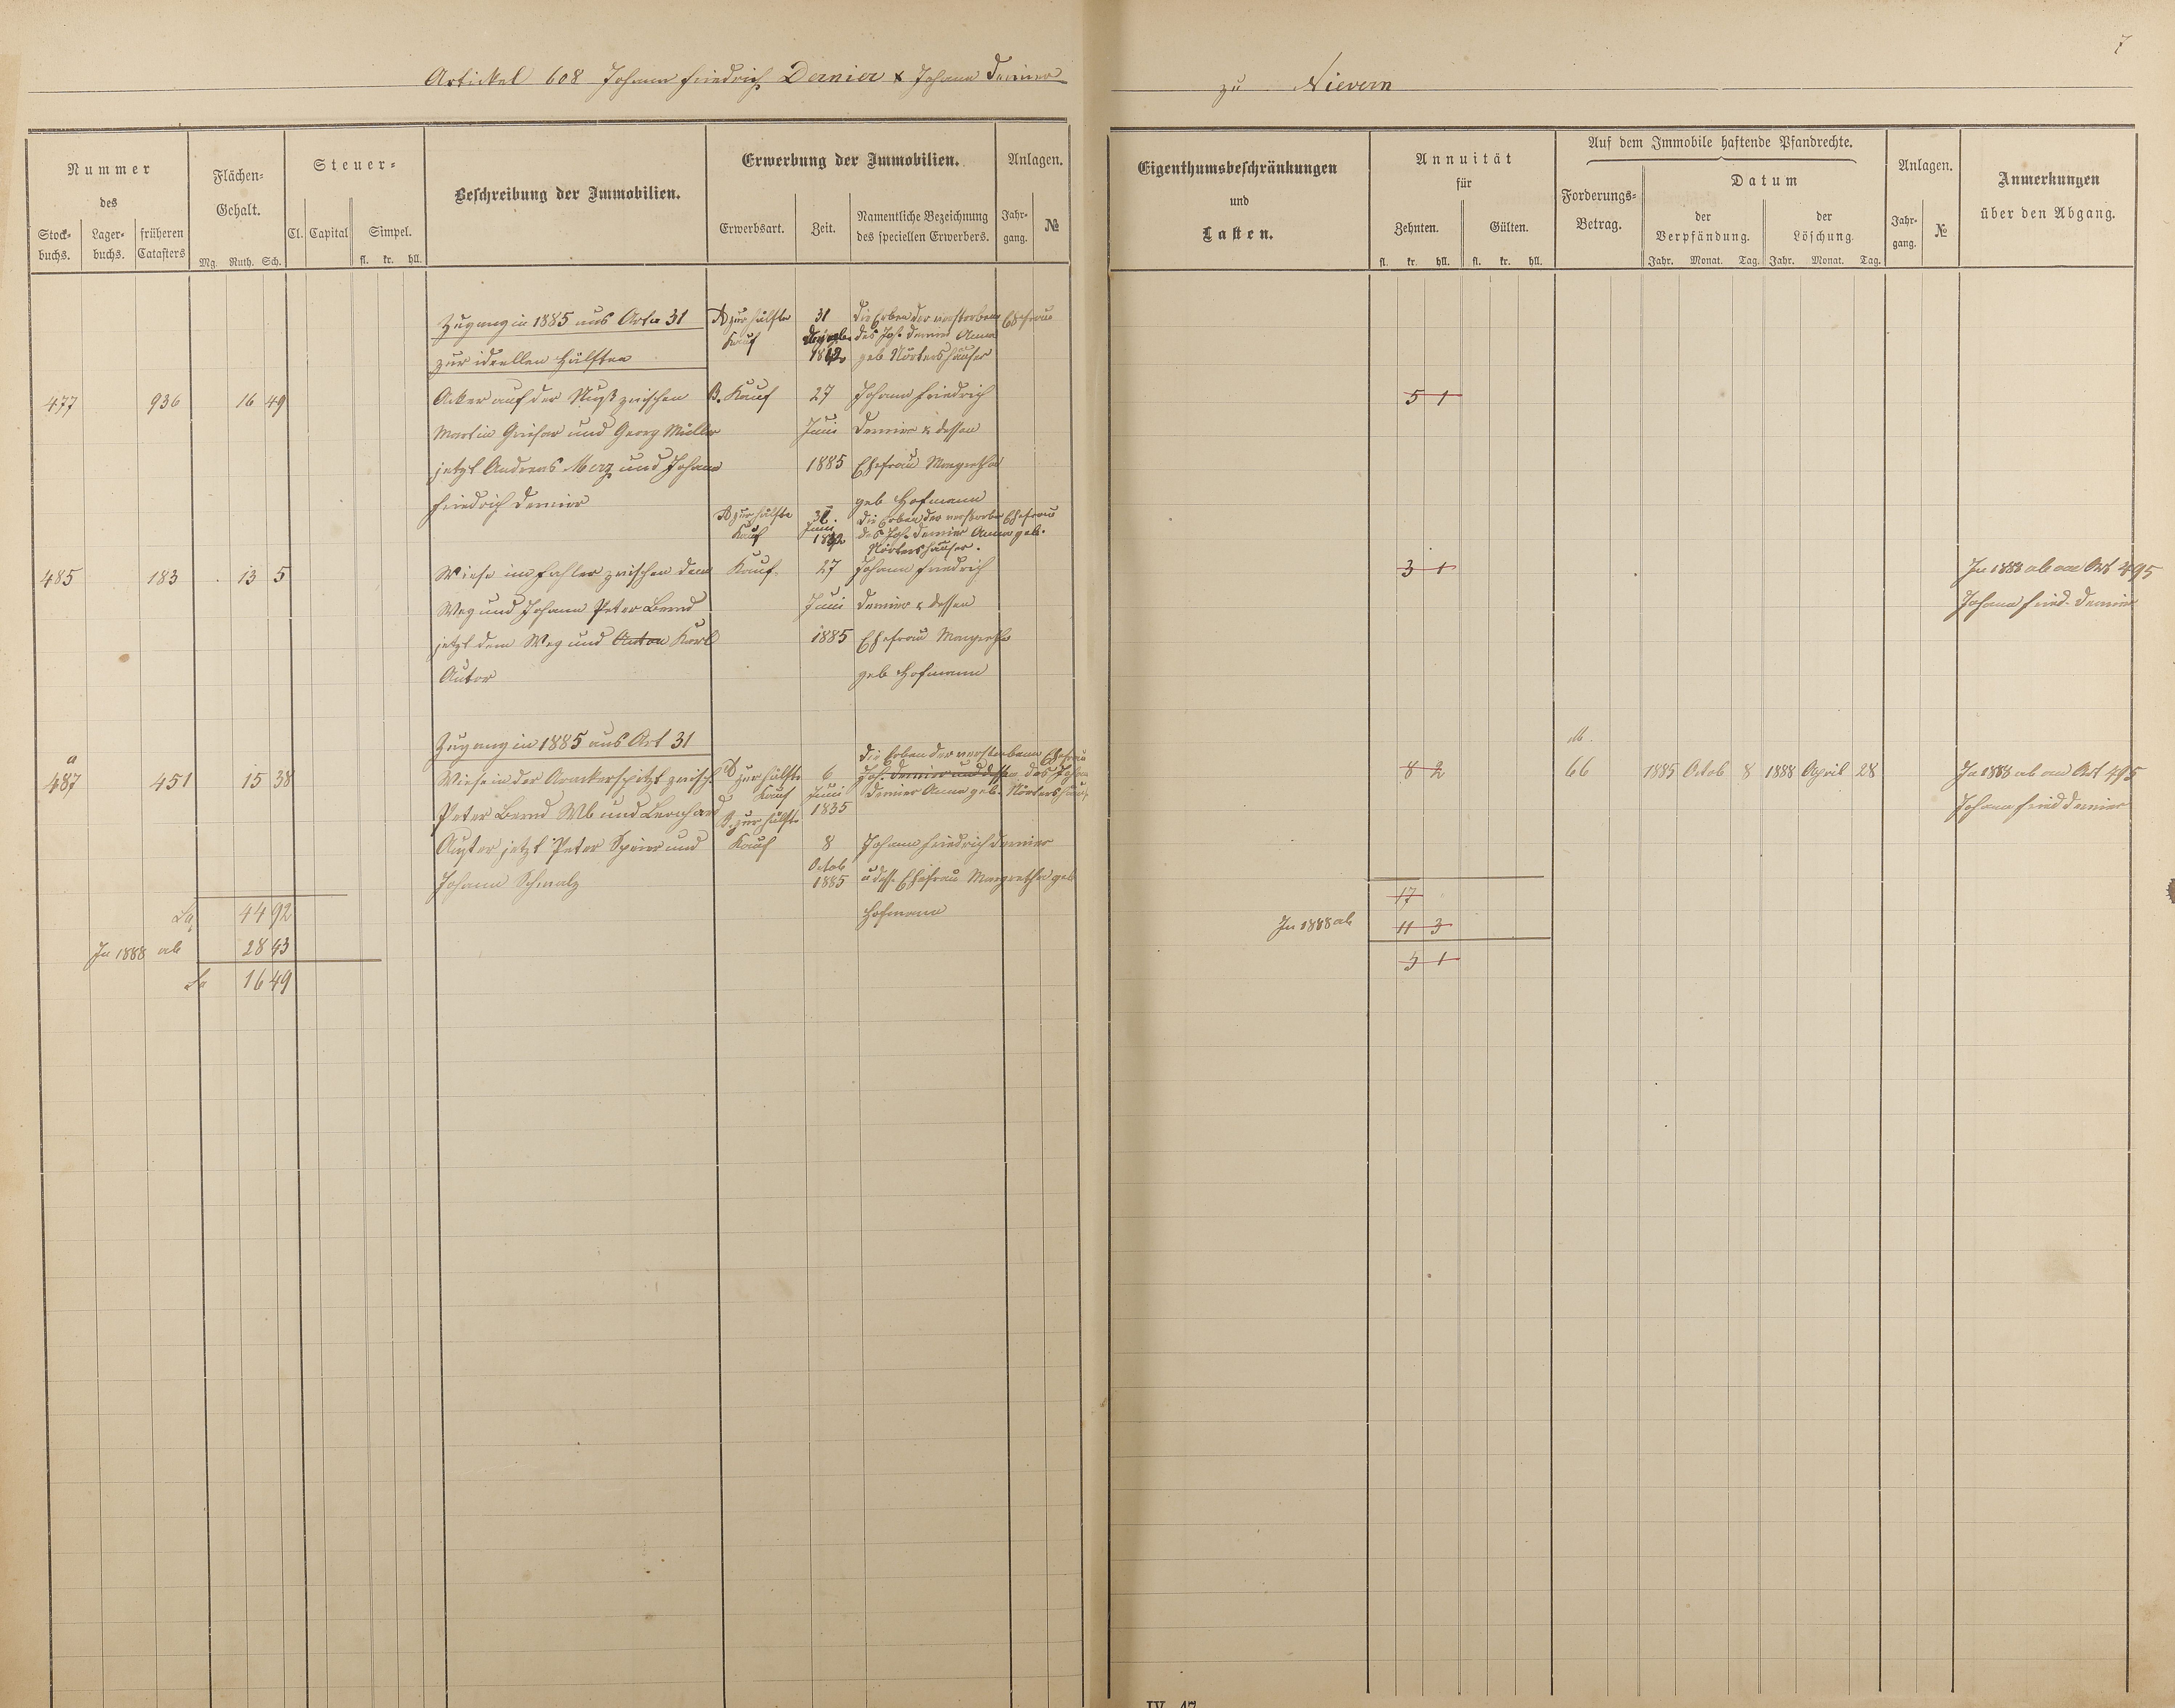 7
Artickel 608 Johann Friedrich Dernier & Johann Dernier
zu Nievern
Nummer
des
Stock-
buchs.
Lager-
buchs.
früheren
Catasters
Flächen-
Gehalt.
Mg. Ruth. Sch.
Steuer-
Cl. Capital Simpel.
fl. kr. hll.
Beschreibung der Immobilien.
Erwerbung der Immobilien.
Erwerbsart. Zeit.
Namentliche Bezeichnung
des speciellen Erwerbers.
Anlagen.
Jahr-
gang.
№
Eigenthumsbeschränkungen
und
Lasten.
Annuität
für
Zehnten. Gülten.
fl. kr. hll. fl. kr. hll.
Auf dem Immobile haftende Pfandrechte.
Forderungs-
Betrag.
Datum
der
Verpfändung.
der
Löschung.
Jahr. Monat. Tag. Jahr. Monat. Tag.
Anlagen.
Jahr-
gang.
№
Anmerkungen
über den Abgang.
Zugang in 1885 aus Art 31
zur ideellen Hälften
A zur Hälfte
Kauf
31
18
die Erben der verstorbenen Ehefrau
des Joh. Dernier Anna
geb Nörtershäuser
477 936 16 49
Acker auf der Nuß zwischen
Martin und Georg Müller
jetzt Andreas Merz und Johann
Friedrich Dernier
B. Kauf
27
Juni
1885
Johann Friedrich
Dernier & dessen
Ehefrau Margretha
geb Hofmann
5 1
A zur Hälfte
Kauf
Juni
die Erben der verstorbn Ehefrau
des Joh. Dernier Anna geb.
Nörtershäuser.
485 183 13 5
Wiese im Fahler zwischen dem
Weg und Johann Peter Bernd
jetzt dem Weg und Anton Karl
Autor
Kauf
27
Juni
1885
Johann Friedrich
Dernier & dessen
Ehefrau Margretha
geb Hofmann
3 1
In 1888 ab an Art 495
Johann Fried. Dernier
Zugang in 1885 aus Art 31
a
487 451 15 38
Wiese in der zwisch
Peter Bernd Wb und Leonhard
jetzt Peter Speier und
Johann Schmalz
A zur Hälfte
Kauf
6
Juni
1835
die Erben der verstorbenen Ehefrau
Joh. Dernier und dessen des Johann
Dernier Anna geb. Nörtershäus
B. zur Hälfte
Kauf
8
Octob
1885
Johann Friedrich Dernier
u dess. Ehefrau Margretha geb
Hofmann
8 2
M.
66 1885 Octob 8 1888 April 28
In 1888 ab an Art 495
Johann Fried Dernier
Sa 44 92
In 1888 ab 28 43
Sa 16 49
17
In 1888 ab 11 3
5 1
IV. 47